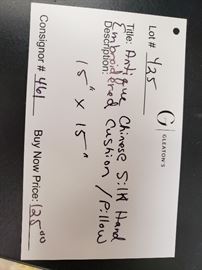 Lot # 425
G | GLEATON'S
Title: Antique Chinese Silk Hand
Description: Embroidered Cushion/Pillow
15" x 15"
Consignor # 461
Buy Now Price: 125.00